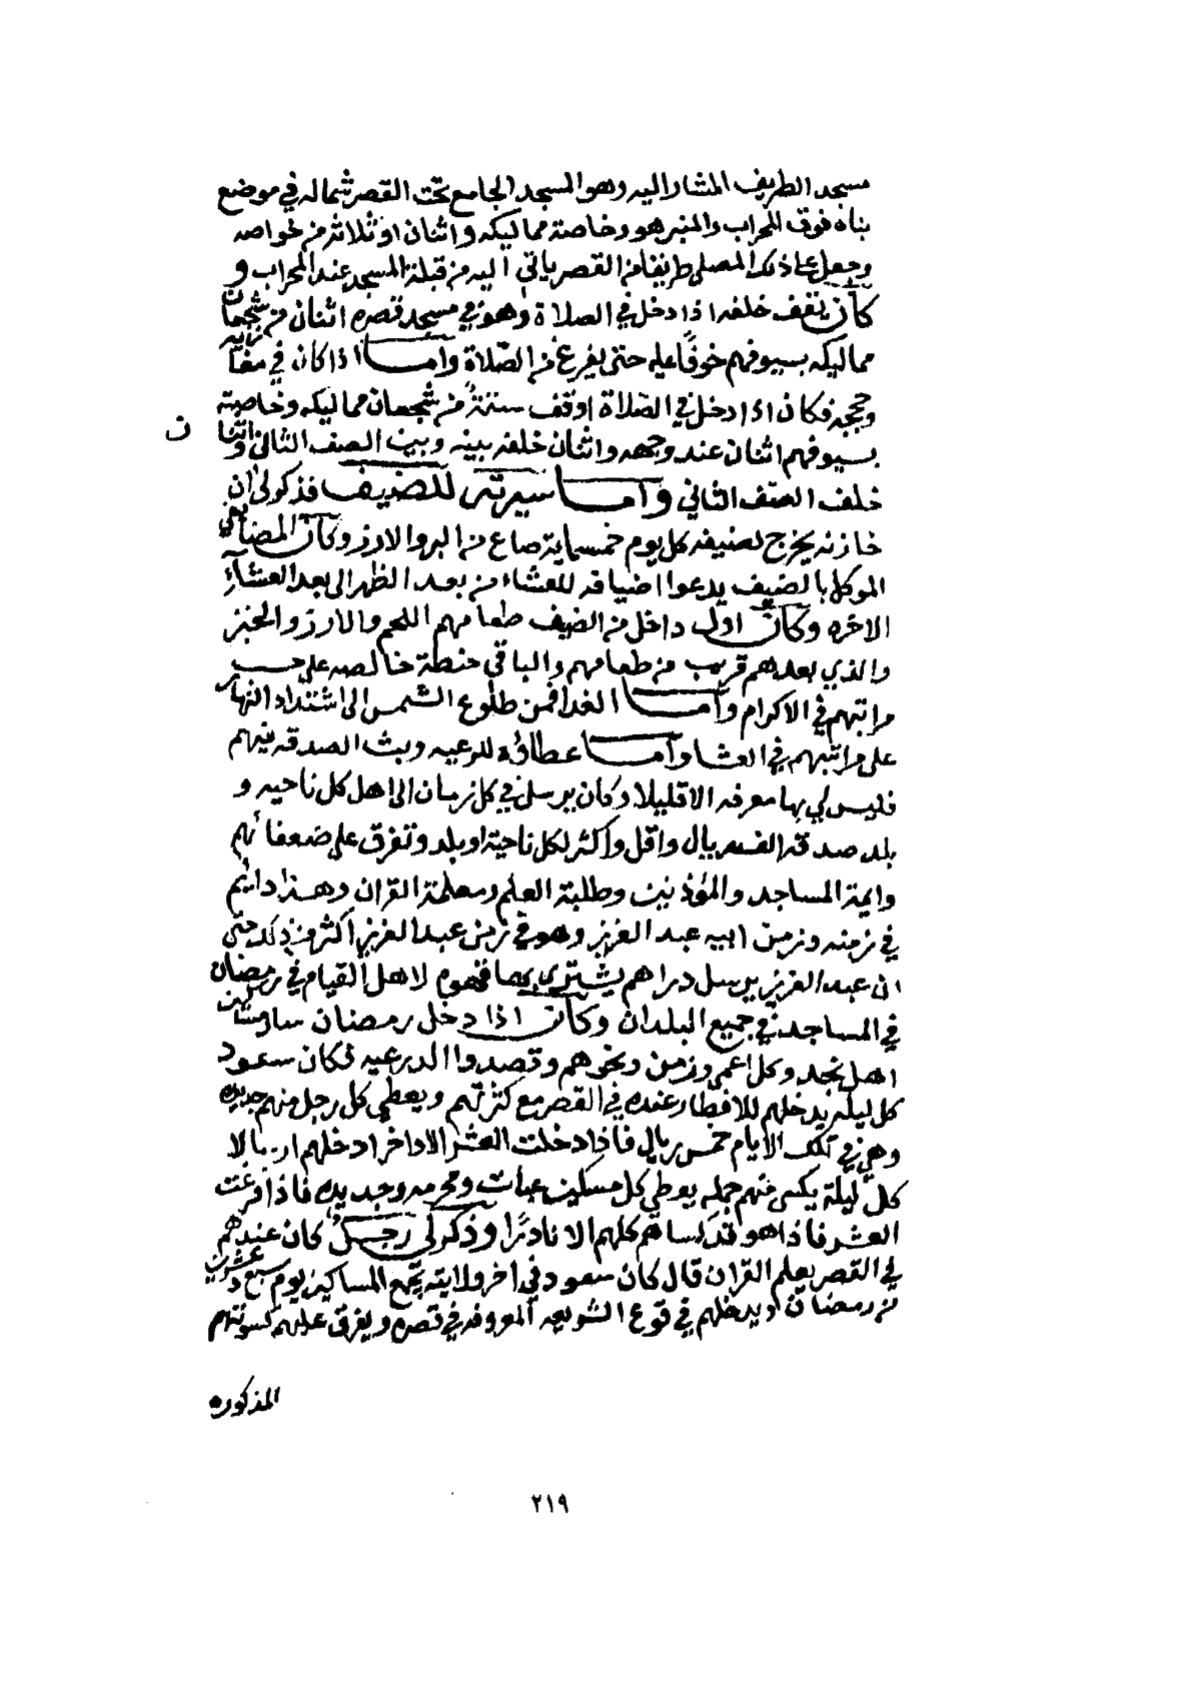 مسجد الطريف المشار اليه وهو المسجد الجامع تحت القصر شماله في موضع
بناه فوق المحراب والمنبر هو وخاصة مماليكه واثنان او ثلاثة من خواصه
وجعل على ذلك المصلى طريقا من القصر ياتي اليه من قبلة المسجد عند المحراب و
كان يقف خلفه اذا دخل في الصلاة وهو في مسجد قصره اثنان من شجعان
مماليكه بسيوفهم خوفًا عليه حتى يفرغ من الصّلاة وأمــا اذا كان في مغازيه
وحججه فكان اذا دخل في الصّلاة اوقف ستةً من شجعان مماليكه وخاصيته
بسيوفهم اثنان عند وجهه واثنان خلفه بينه وبين الصف الثاني واثنان
خلف الصف الثاني وامــا سيرته للضيف فذكر لي ان
خازنه يخرج لضيفه كل يوم خمسماية صاع من البر والارز وكان المضايفي
الموكل بالضيف يدعوا اضيافه للعشاء من بعد الظهر الى بعد العشآءِ
الاخره وكان اول داخل من الضيف طعامهم اللحم والارز والخبز
والذي بعدهم قريب من طعامهم والباقي حنطة خالصه على حسب
مراتبهم في الاكرام وأمــا الغدا فمن طلوع الشمس الى اشتداد النهار
على مراتبهم في العشا وأمــا عطاؤه للرعيه وبث الصدقه فيهم
فليس لي بها معرفه الا قليلا وكان يرسل في كل زمان الى اهل كل ناحيه و
بلد صدقه الف ريال واقل واكثر لكل ناحية او بلد وتفرق على ضعفائهم
وايمة المساجد والمؤذنين وطلبة العلم ومعلمة القران وهـذا دائم
في زمنه وزمن ابيه عبد العزيز وهو في زمن عبد العزيز اكثر من ذلك حتى
ان عبد العزيز يرسل دراهم يشترى بها قهوه لاهل القيام في رمضان
في المساجد في جميع البلدان وكان اذا دخل رمضان سار مساكين
اهل نجد وكل اعمى وزمن ونحوهم وقصدوا الدرعيه فكان سعود
كل ليله يدخلهم للافطار عنده في القصر مع كثرتهم ويعطي كل رجل منهم جديده
وهي في تلك الايام خمس ريال فاذا دخلت العشر الاواخر ادخلهم ارسالا
كلّ ليلة يكسى منهم جمله يعطي كل مسكين عبات ومحرمه وجديده فاذا فرغت
العشر فاذا هو قد كساهم كلهم الا نادرًا وذكر لي رجـل كان عندهم
في القصر يعلم القران قال كان سعود في اخر ولايته يجمع المساكين يوم سبع وعشرين
من رمضان ويدخلهم في قوع الشويعي المعروفه في قصره ويفرق عليهم كسوتهم
المذكوره
ن
٢١٩